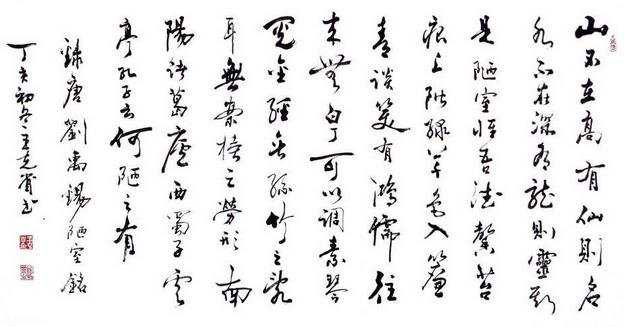 山不在高有仙則名
水不在深有龍則靈斯
是陋室惟吾德馨苔
痕上階綠草色入簾
青談笑有鴻儒往
來無白丁可以調素琴
閱金經无絲竹之亂
耳無案牘之勞形南
陽諸葛廬西蜀子雲
亭孔子云何陋之有
錄唐劉禹錫陋室銘
丁亥初冬王克书